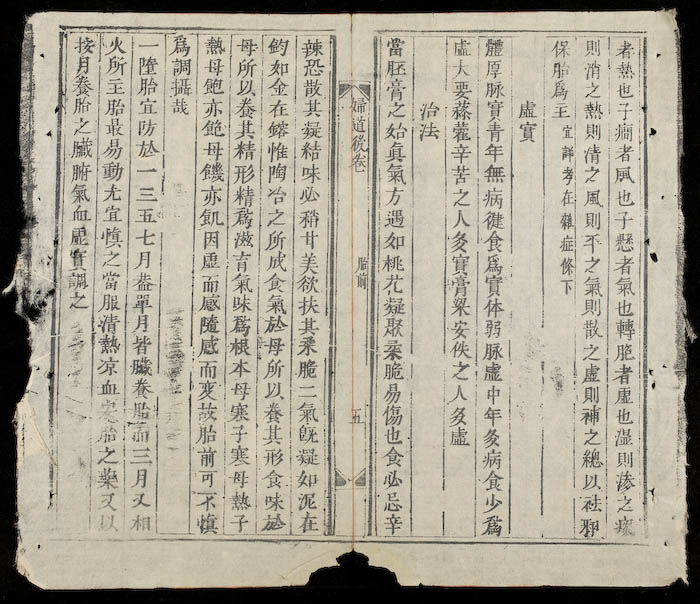 者熱也子癇者風也子懸者氣也轉胞者虛也濕則滲之痰
則消之熱則清之風則平之氣則散之虛則補之總以祛邪
保胎爲主宜詳考在雜症條下
虛實
體厚脉實青年無病健食爲實体弱脉虛中年多病食少爲
虛大要藜藿辛苦之人多實膏粱安佚之人多虛
治法
當胚膏之始眞氣方遇如桃花凝聚柔脆易傷也食必忌辛
婦道後卷
胎前
五
辣恐散其凝結味必稍甘美欲扶其柔脆二氣既凝如泥在
鈞如金在鎔惟陶冶之所成食氣於母所以養其形食味於
母所以養其精形精爲滋育氣味爲根本母寒子寒母熱子
熱母飽亦飽母饑亦飢因虛而感隨感而变故胎前可不慎
爲調攝哉
一墮胎宜防於一三五七月盖單月皆臟養胎而三月又相
火所主胎最易動尤宜慎之當服清熱凉血安胎之藥又以
按月養胎之臟腑氣血虛實調之